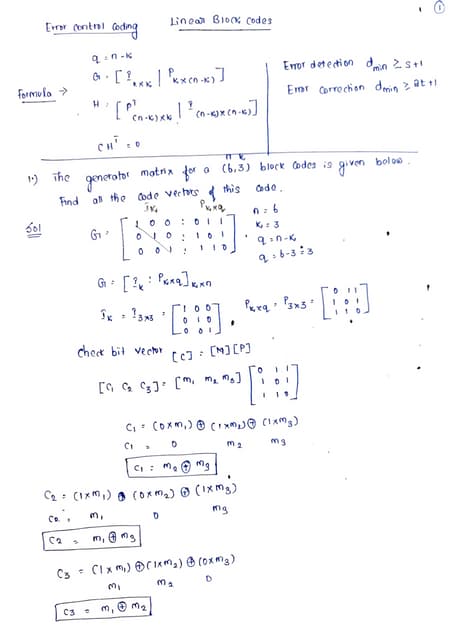 1 ①
Error control Coding Linear Block codes
q = n-k
Formula → G = [ I k×k | P k×(n-k) ]
H = [ P^T (n-k)×k | I (n-k)×(n-k) ]
CH^T = 0
Error detection dmin ≥ s+1
Error Correction dmin ≥ 2t+1
n k
1.) The generator matrix for a (6,3) block codes is given below.
Find all the code vectors of this code.
Sol
Ik Pk×q
G = [ 1 0 0 : 0 1 1
0 1 0 : 1 0 1
0 0 1 : 1 1 0 ]
n = 6
k = 3
q = n-k
q = 6-3 = 3
G = [ Ik : Pk×q ] k×n
Ik = I3×3 = [ 1 0 0
0 1 0
0 0 1 ] .
Pk×q = P3×3 = [ 0 1 1
1 0 1
1 1 0 ]
check bit vector [C] = [M][P]
[C1 C2 C3] = [m1 m2 m3] [ 0 1 1
1 0 1
1 1 0 ]
C1 = (0×m1) ⊕ (1×m2) ⊕ (1×m3)
C1 = 0 m2 m3
C1 = m2 ⊕ m3
C2 = (1×m1) ⊕ (0×m2) ⊕ (1×m3)
C2 = m1 0 m3
C2 = m1 ⊕ m3
C3 = (1×m1) ⊕ (1×m2) ⊕ (0×m3)
m1 m2 0
C3 = m1 ⊕ m2